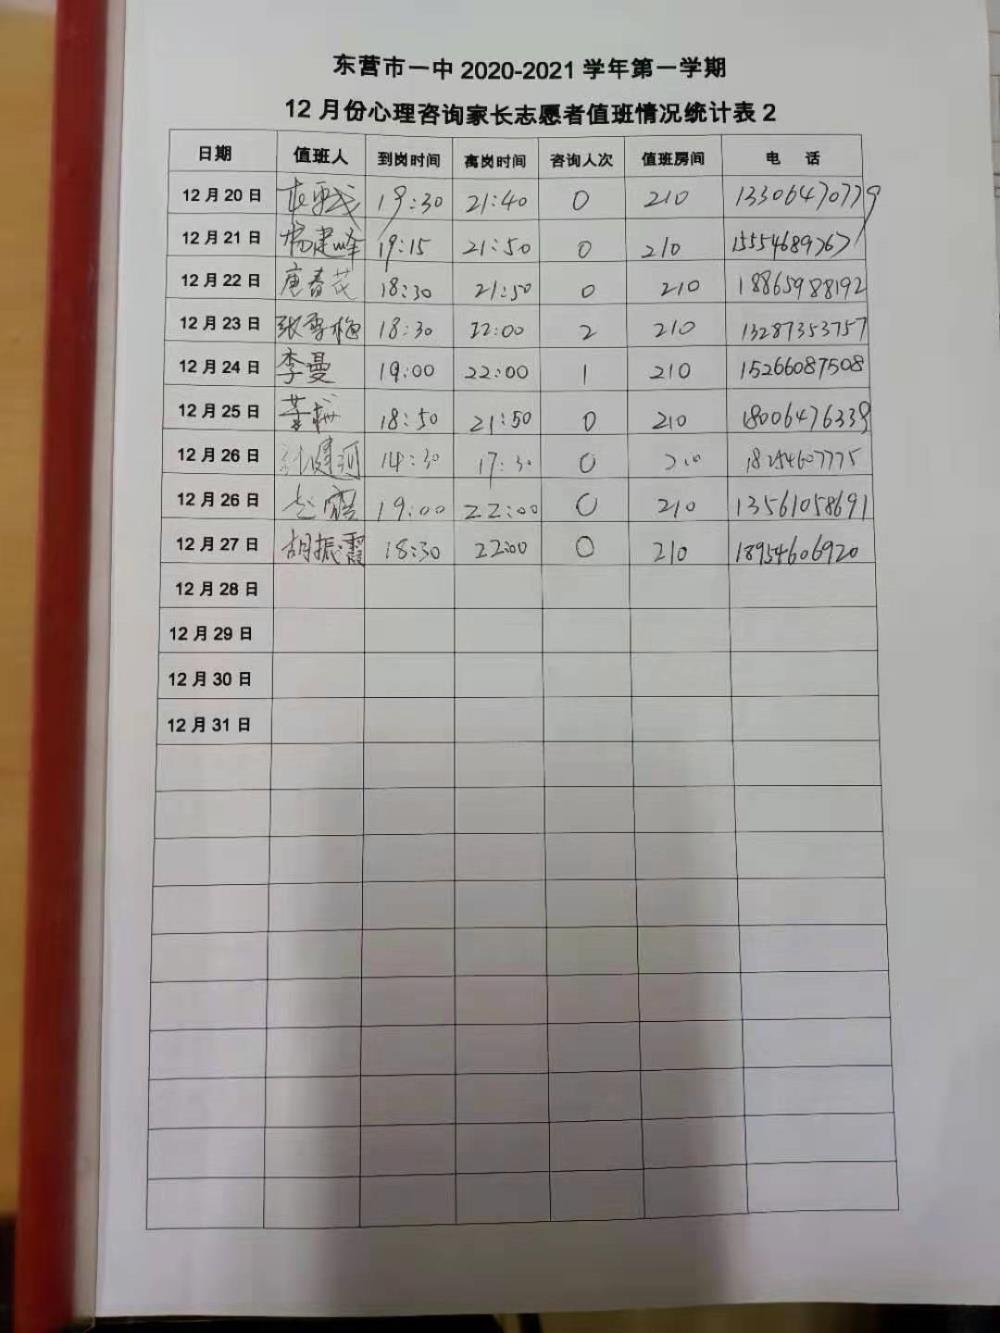 东营市一中 2020-2021 学年第一学期
12 月份心理咨询家长志愿者值班情况统计表 2
日期 值班人 到岗时间 离岗时间 咨询人次 值班房间 电 话
12 月 20 日 19:30 21:40 0 210 13306470779
12 月 21 日 杨建峰 19:15 21:50 0 210 15554689767
12 月 22 日 唐春花 18:30 21:50 0 210 18865988192
12 月 23 日 张雪梅 18:30 22:00 2 210 13287353757
12 月 24 日 李曼 19:00 22:00 1 210 15266087508
12 月 25 日 18:50 21:50 0 210 18006476339
12 月 26 日 14:30 17:30 0 210 18254607775
12 月 26 日 赵霞 19:00 22:00 0 210 13561058691
12 月 27 日 胡振霞 18:30 22:00 0 210 18954606920
12 月 28 日
12 月 29 日
12 月 30 日
12 月 31 日